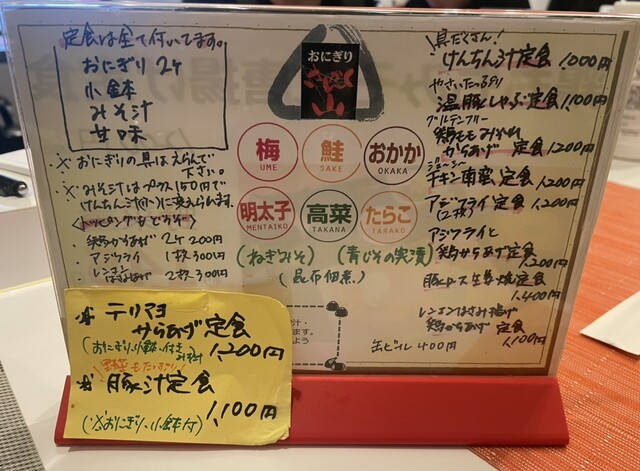 定食は全て付いてます。
おにぎり 2ヶ
小鉢
みそ汁
甘味
※おにぎりの具はえらんで
下さい。
※みそ汁はプラス150円で
けんちん汁に変えられます。
<トッピングもどうぞ>
・鶏からあげ 2ヶ 200円
・アジフライ 1枚 300円
・レンコンはさみあげ 2枚 300円
おにぎり
梅
UME
鮭
SAKE
おかか
OKAKA
明太子
MENTAIKO
高菜
TAKANA
たらこ
TARAKO
(ねぎみそ) (青じその実漬)
(昆布佃煮)
具だくさん!
けんちん汁定食 1,000円
やさいたっぷり
温豚しゃぶ定食 1,100円
グルテンフリー
鶏ももみかわ
からあげ 定食 1,200円
ジューシー
チキン南蛮 定食 1,200円
アジフライ定食 1,200円
(2枚)
アジフライと
鶏からあげ定食
1,200円
豚ロース生姜焼定食
1,400円
レンコンはさみ揚げ
鶏からあげ 定食
1,100円
缶ビール 400円
テリマヨ
からあげ定食
(おにぎり、小鉢、付き みそ汁) 1,200円
野菜もたっぷり
豚汁定食
1,100円
(※おにぎり、小鉢付)